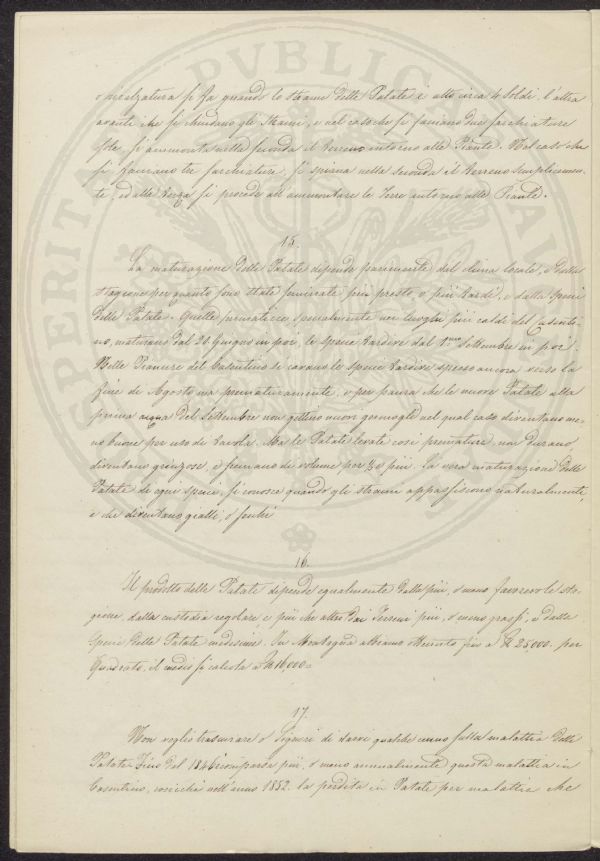 o rincalzatura si fa quando lo strame delle Patate è alto circa 4 Soldi, l'altra
avanti che si chiudano gli Strami, e nel caso che si facciano due sarchiature
sole, si ammonta nella seconda il terreno intorno alle Piante. Nel caso che
si facciano tre sarchiature, si spiana nella seconda il terreno semplicemen-
te, ed alla terza si procede all'ammontare le Terre intorno alle Piante.
15.
La maturazione delle Patate dipende parimente dal clima locale, e dalla
stagione per quanto sono state seminate più presto o più tardi, e dalla specie
delle Patate. Quelle primaticcie, specialmente nei luoghi più caldi del Casenti-
no, maturano dal 26 Giugno in poi, le specie tardive dal 1mo Settembre in poi.
Nelle Pianure del Casentino si cavano le specie tardive spesso ancora verso la
fine di Agosto ma prematuramente, o per paura che le nuove Patate alla
prima acqua del Settembre non gettino nuovi germogli nel qual caso diventano me-
no buone per uso di tavola. Ma le Patate levate così premature, non durano
diventano grinzose, e scemano di volume per 1/3 e più. La vera maturazione delle
Patate di ogni specie, si conosce quando gli strami appassiscono naturalmente,
e che diventano gialli, o secchi
16.
Il prodotto delle Patate dipende egualmente dalla più, o meno favorevole sta-
gione, dalla custodia regolare e più che altro dai Terreni più, o meno grassi, e dalla
specie delle Patate medesime. In Montagna abbiamo ottenuto fino a 25,000. per
Quadrato, il medio si calcola a 10,000=
17.
Non voglio trascurare o Signori di darvi qualche cenno sulla malattia delle
Patate. Fino dal 1846 ricomparse più, o meno annualmente questa malattia in
Casentino, nell'anno 1852. la perdita in Patate per malattie che
SPERITA PVBLICA